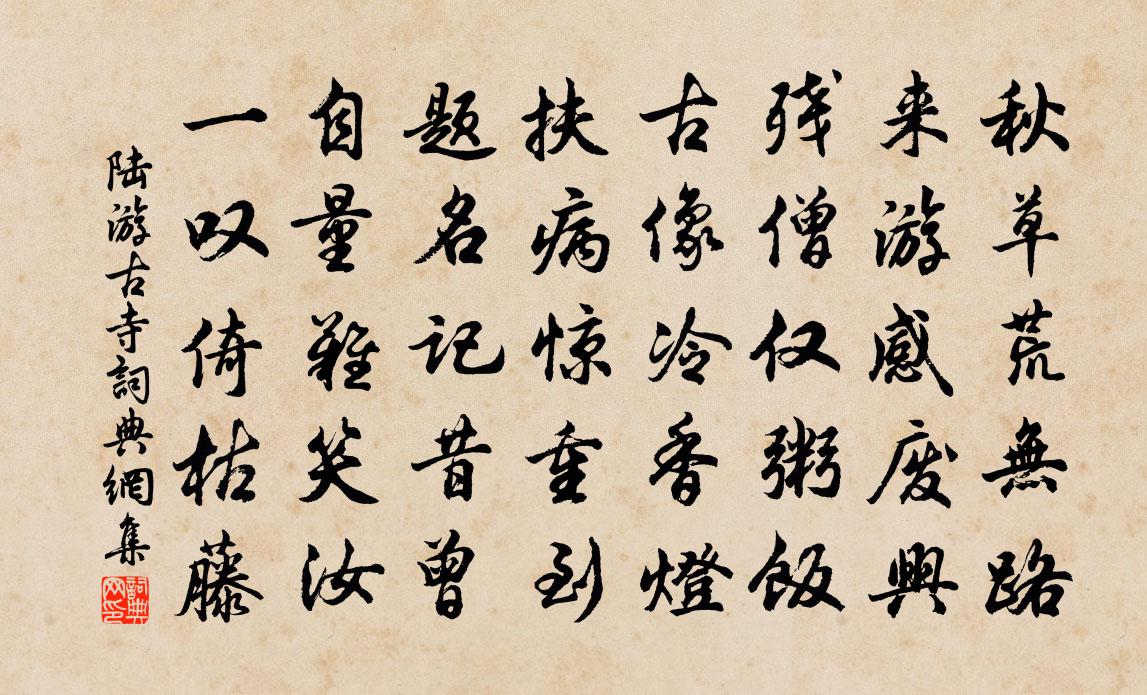 秋草荒無路
来游感废興
残僧仅粥飯
古像冷香燈
扶病惊重到
题名记昔曾
自量難笑汝
一叹倚枯藤
陆游古寺詞典網集
詞典